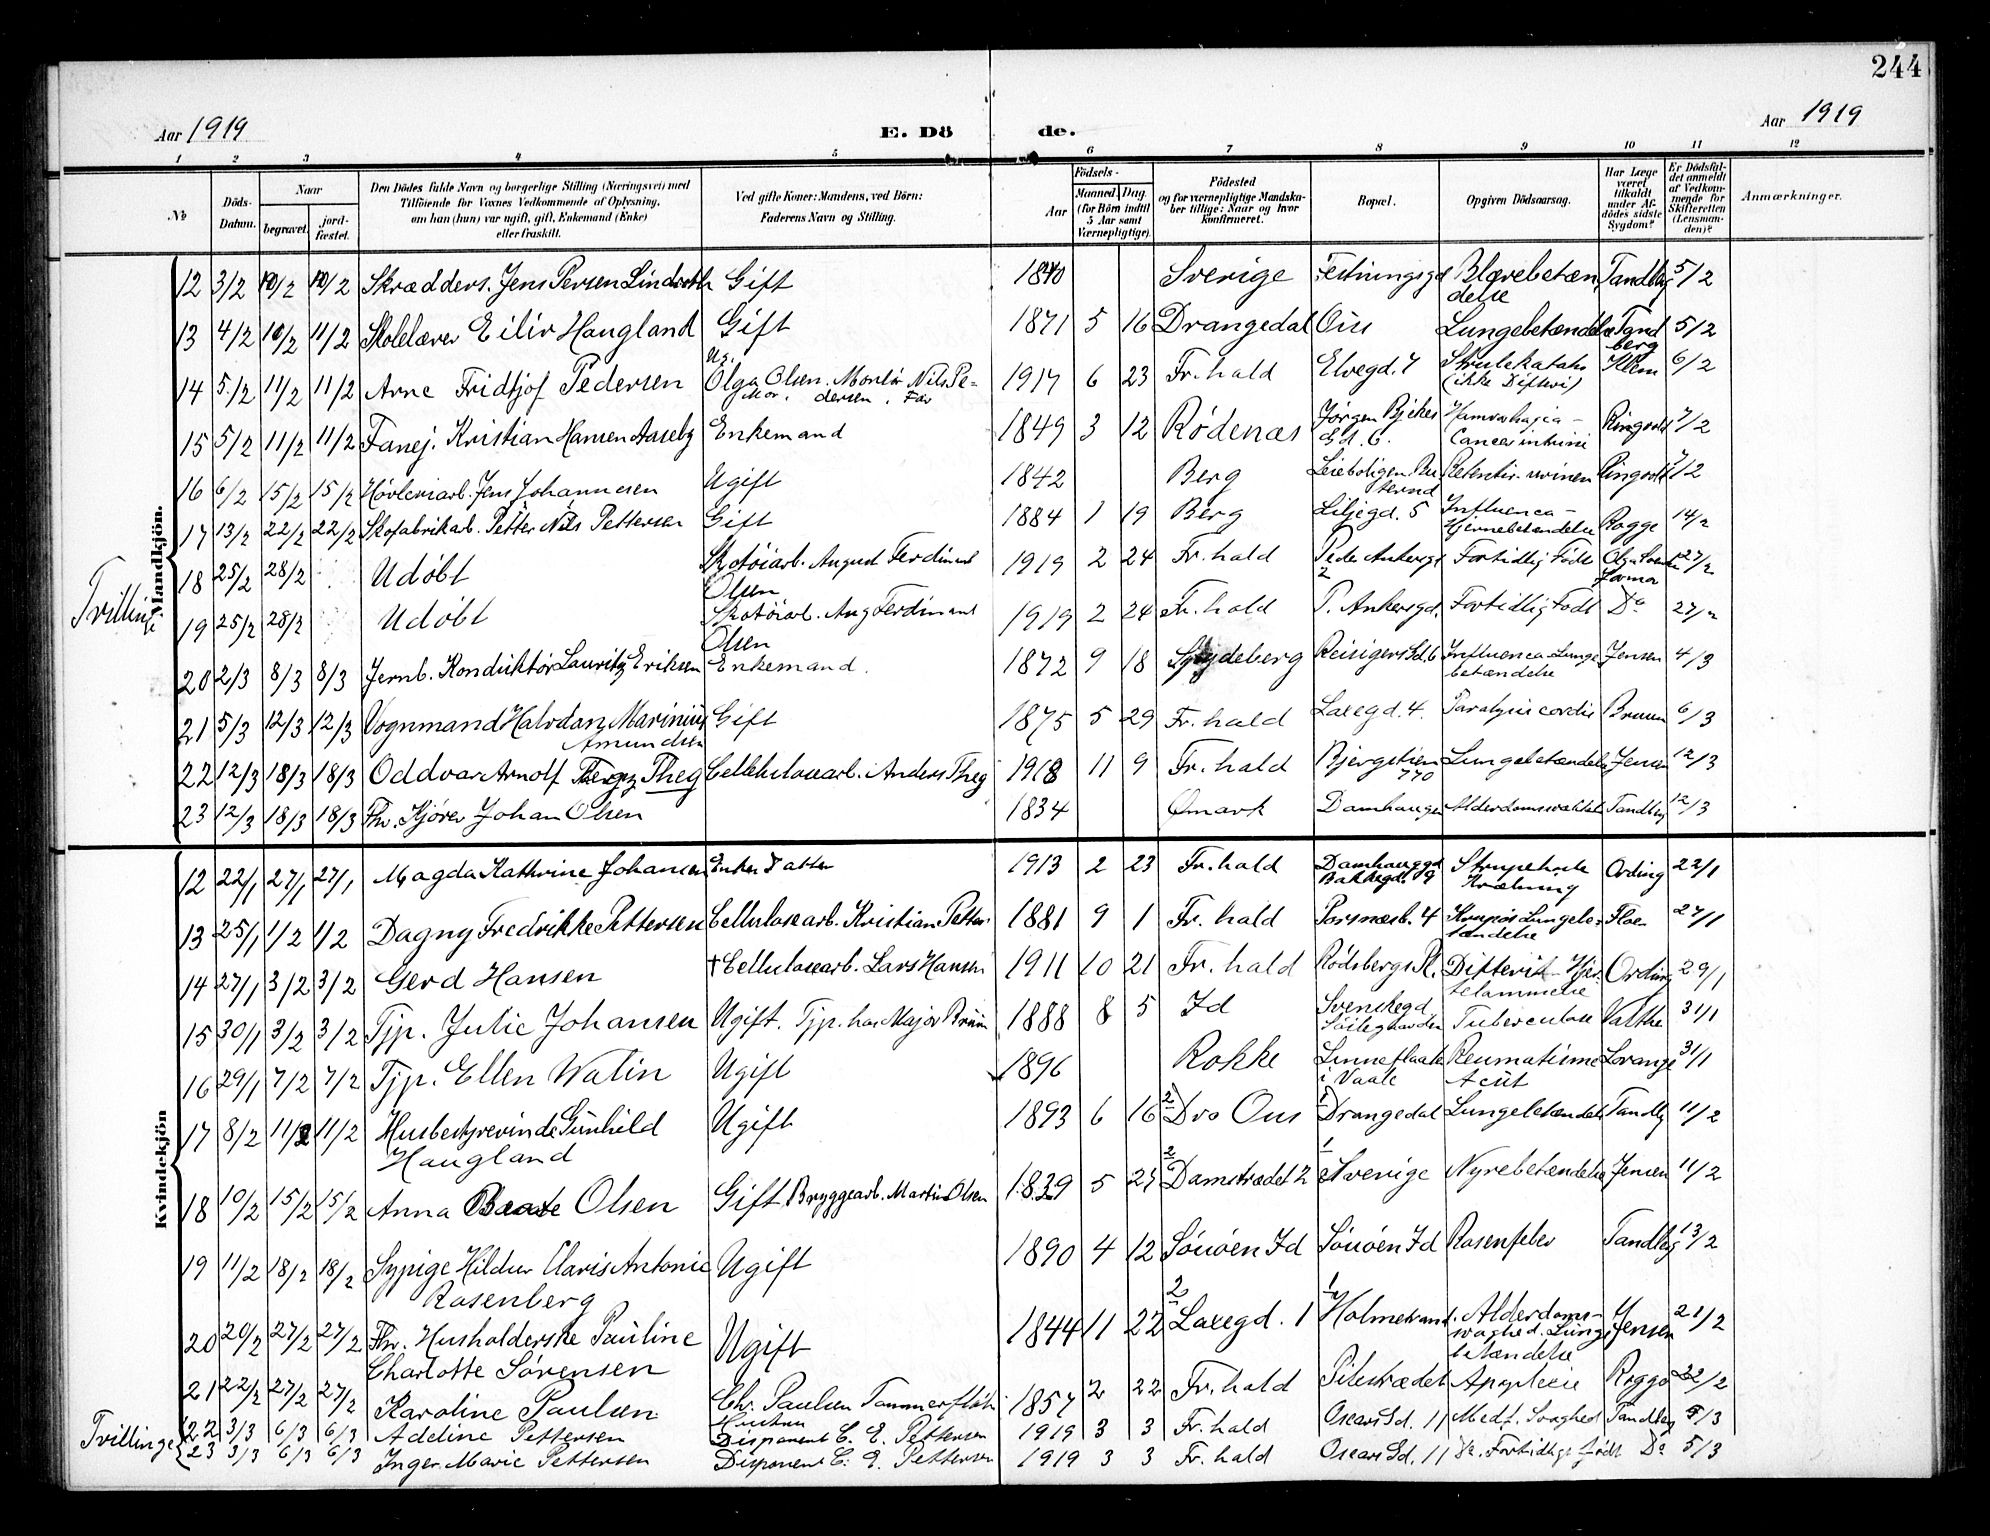 244
Aar 1919
E. Dö de.
Aar 1919
1 2 3 4 5 6 7 8 9 10 11 12
№
Döds-Datum.
Naar
begravet.
jord-fæstet.
Den Dödes fulde Navn og borgerlige Stilling (Næringsvei) med
Tilföiende for Voxnes Vedkommende af Oplysning,
om han (hun) var ugift, gift, Enkemand (Enke)
eller fraskilt.
Ved gifte Koner: Mandens, ved Börn:
Faderens Navn og Stilling.
Födsels-
Aar
Maaned.
Dag.
(for Börn indtil
5 Aar samt
Værnepligtige).
Födested
og for værnepligtige Mandska-
ber tillige: Naar og hvor
konfirmeret.
Bopæl.
Opgiven Dödsaarsag.
Har Læge
været
tilkaldt
under Af-
dödes sidste
Sygdom?
Er Dödsfal-
det anmeldt
af Vedkom-
mende for
Skifteretten
(Lensman-
den)?
Anmærkninger.
Mandkjön.
12 3/2 10/2 10/2 Skrædders. Jens Persen Gift 1840 Sverige Blærebetændelse Tandbg 5/2
13 4/2 10/2 11/2 Skolelærer Eiliv Haugland Gift 1871 5 16 Drangedal Ous Lungebetændelse Tandberg 5/2
14 5/2 11/2 11/2 Arne Fridtjof Pedersen Ug. Olga Olsen. Mor. Montør Nils Pedersen. Far 1917 6 23 Fr.hald Elvegd. 7 (ikke Difteri) 6/2
15 5/2 11/2 11/2 Kristian Hansen Aaseby Enkemand 1849 3 12 Rødenæs Ringvold 7/2
16 6/2 15/2 15/2 Høvleriarb. Jens Johannesen Ugift 1842 Berg Ringvold 7/2
17 13/2 22/2 22/2 Skofabrikarb. Petter Nils Pettersen Gift 1884 1 19 Berg Liljegd. 5 Influenca - Hjernebetændelse Rogge 14/2
Tvillinge
18 25/2 28/2 Udøbt Skotøiarb. August Ferdinant Olsen 1919 2 24 Fr.hald Fortidlig Født 27/2
19 25/2 28/2 Udøbt Skotøiarb. Aug Ferdinant Olsen 1919 2 24 Fr.hald P. Ankersgd. Fortidlig Født Do 27/2
20 2/3 8/3 8/3 Jernb. Konduktør Lauritz Eriksen Enkemand. 1872 9 18 Spydeberg Influenca-Lungebetændelse Jensen 4/3
21 5/3 12/3 12/3 Vognmand Halvdan Marinius Amundsen Gift 1875 5 29 Fr.hald Laxegd. 4. Paralysis cordis Bruun 6/3
22 12/3 18/3 18/3 Oddvar Arnolf Theg Cellulosearb. Anders Theg 1918 11 9 Fr.hald Bjergstien 770 Lungebetændelse Jensen 12/3
23 12/3 18/3 18/3 Fhv. Kjører Johan Olsen 1834 Ømark Damhaugen Alderdomssvakhet Tandberg 12/3
Kvindekjön
12 22/1 27/1 27/1 Magda Kathrine Johansen Enkes Datter 1913 2 23 Fr.hald Strupehoste Ording 22/1
13 25/1 1/2 1/2 Dagny Fredrikke Pettersen Cellulosearb. Kristian Petter. 1881 9 1 Fr.hald Porsnæsb. 4 27/1
14 27/1 3/2 3/2 Gerd Hansen † Cellulosearb. Lars Hansen 1911 10 21 Fr.hald Rødsbergs Pl. Ording 29/1
15 30/1 3/2 3/2 Tjp. Julie Johansen Ugift. Tjp. hos Major Bruun 1888 8 5 Id Svenskegd Tuberculose 31/1
16 29/1 7/2 7/2 Tjp. Ellen Watin Ugift 1896 Rokke i Vaale Reumatisme Acut Lorange 31/1
17 8/2 11/2 11/2 Husbestyrerinde Gunhild Haugland Ugift 1893 6 16 2) Dvo Ous 1) Drangedal Lungebetændelse Tandbg 11/2
18 10/2 15/2 15/2 Anna Beate Olsen Gift Bryggearb. Martin Olsen 1839 5 27 2 Damstrædet 2 1 Sverige Nyrebetændelse Jensen 11/2
19 11/2 18/2 18/2 Sypige Hildur Claris Antonie Rosenberg Ugift 1890 4 12 Sørøen Id Sørøen Id Rosenfeber Tandbg 13/2
20 20/2 27/2 27/2 Fhv. Husholderske Pauline Charlotte Sørensen Ugift 1844 11 22 2 Laxegd. 1 1 Holmestrand. Alderdomssvaghed. Lungebetændelse Jensen 21/2
21 22/2 27/2 27/2 Karoline Paulsen Chr. Paulsen Tømmerfløt. Hustru 1857 2 22 Fr.hald Pilestrædet Apoplexie Rogge 22/2
Tvillinge
22 3/3 6/3 6/3 Adeline Pettersen Disponent C. E. Pettersen 1919 3 3 Fr.hald Oscars Gd. 11 Medf. Svaghed Tandbg 5/3
23 3/3 6/3 6/3 Inger Marie Pettersen Disponent C. E. Pettersen 1919 3 3 Fr.hald Oscars Gd. 11 Fortidligt født Do 5/3